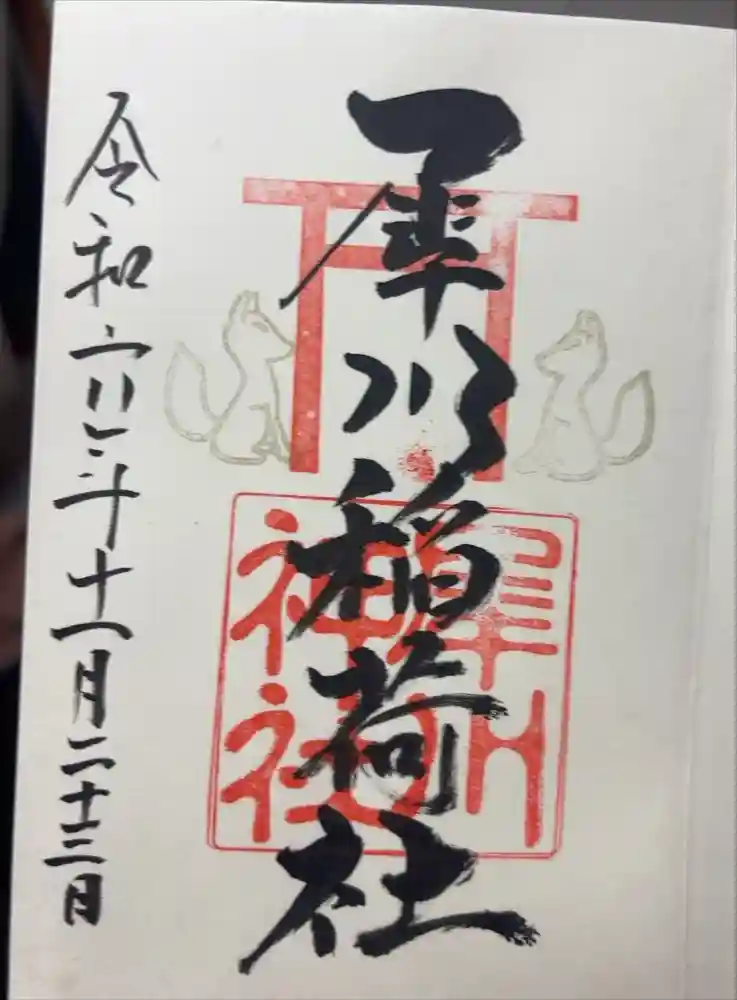 犀川稲荷社
犀川
神社
令和六年十一月二十三日